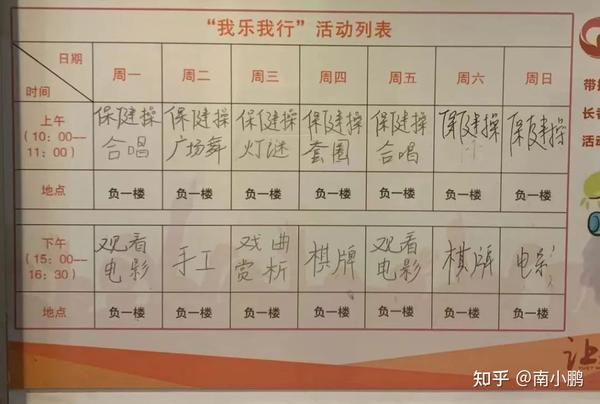 “我乐我行”活动列表
日期 时间 周一 周二 周三 周四 周五 周六 周日
上午 保健操 保健操 保健操 保健操 保健操 保健操 保健操
(10:00—11:00) 合唱 广场舞 灯谜 套圈 合唱
地点 负一楼 负一楼 负一楼 负一楼 负一楼 负一楼 负一楼
下午 观看 手工 戏曲 棋牌 观看 棋牌 电影
(15:00—16:30) 电影 赏析 电影
地点 负一楼 负一楼 负一楼 负一楼 负一楼 负一楼 负一楼
长者
活动
让
知乎 @南小鹏